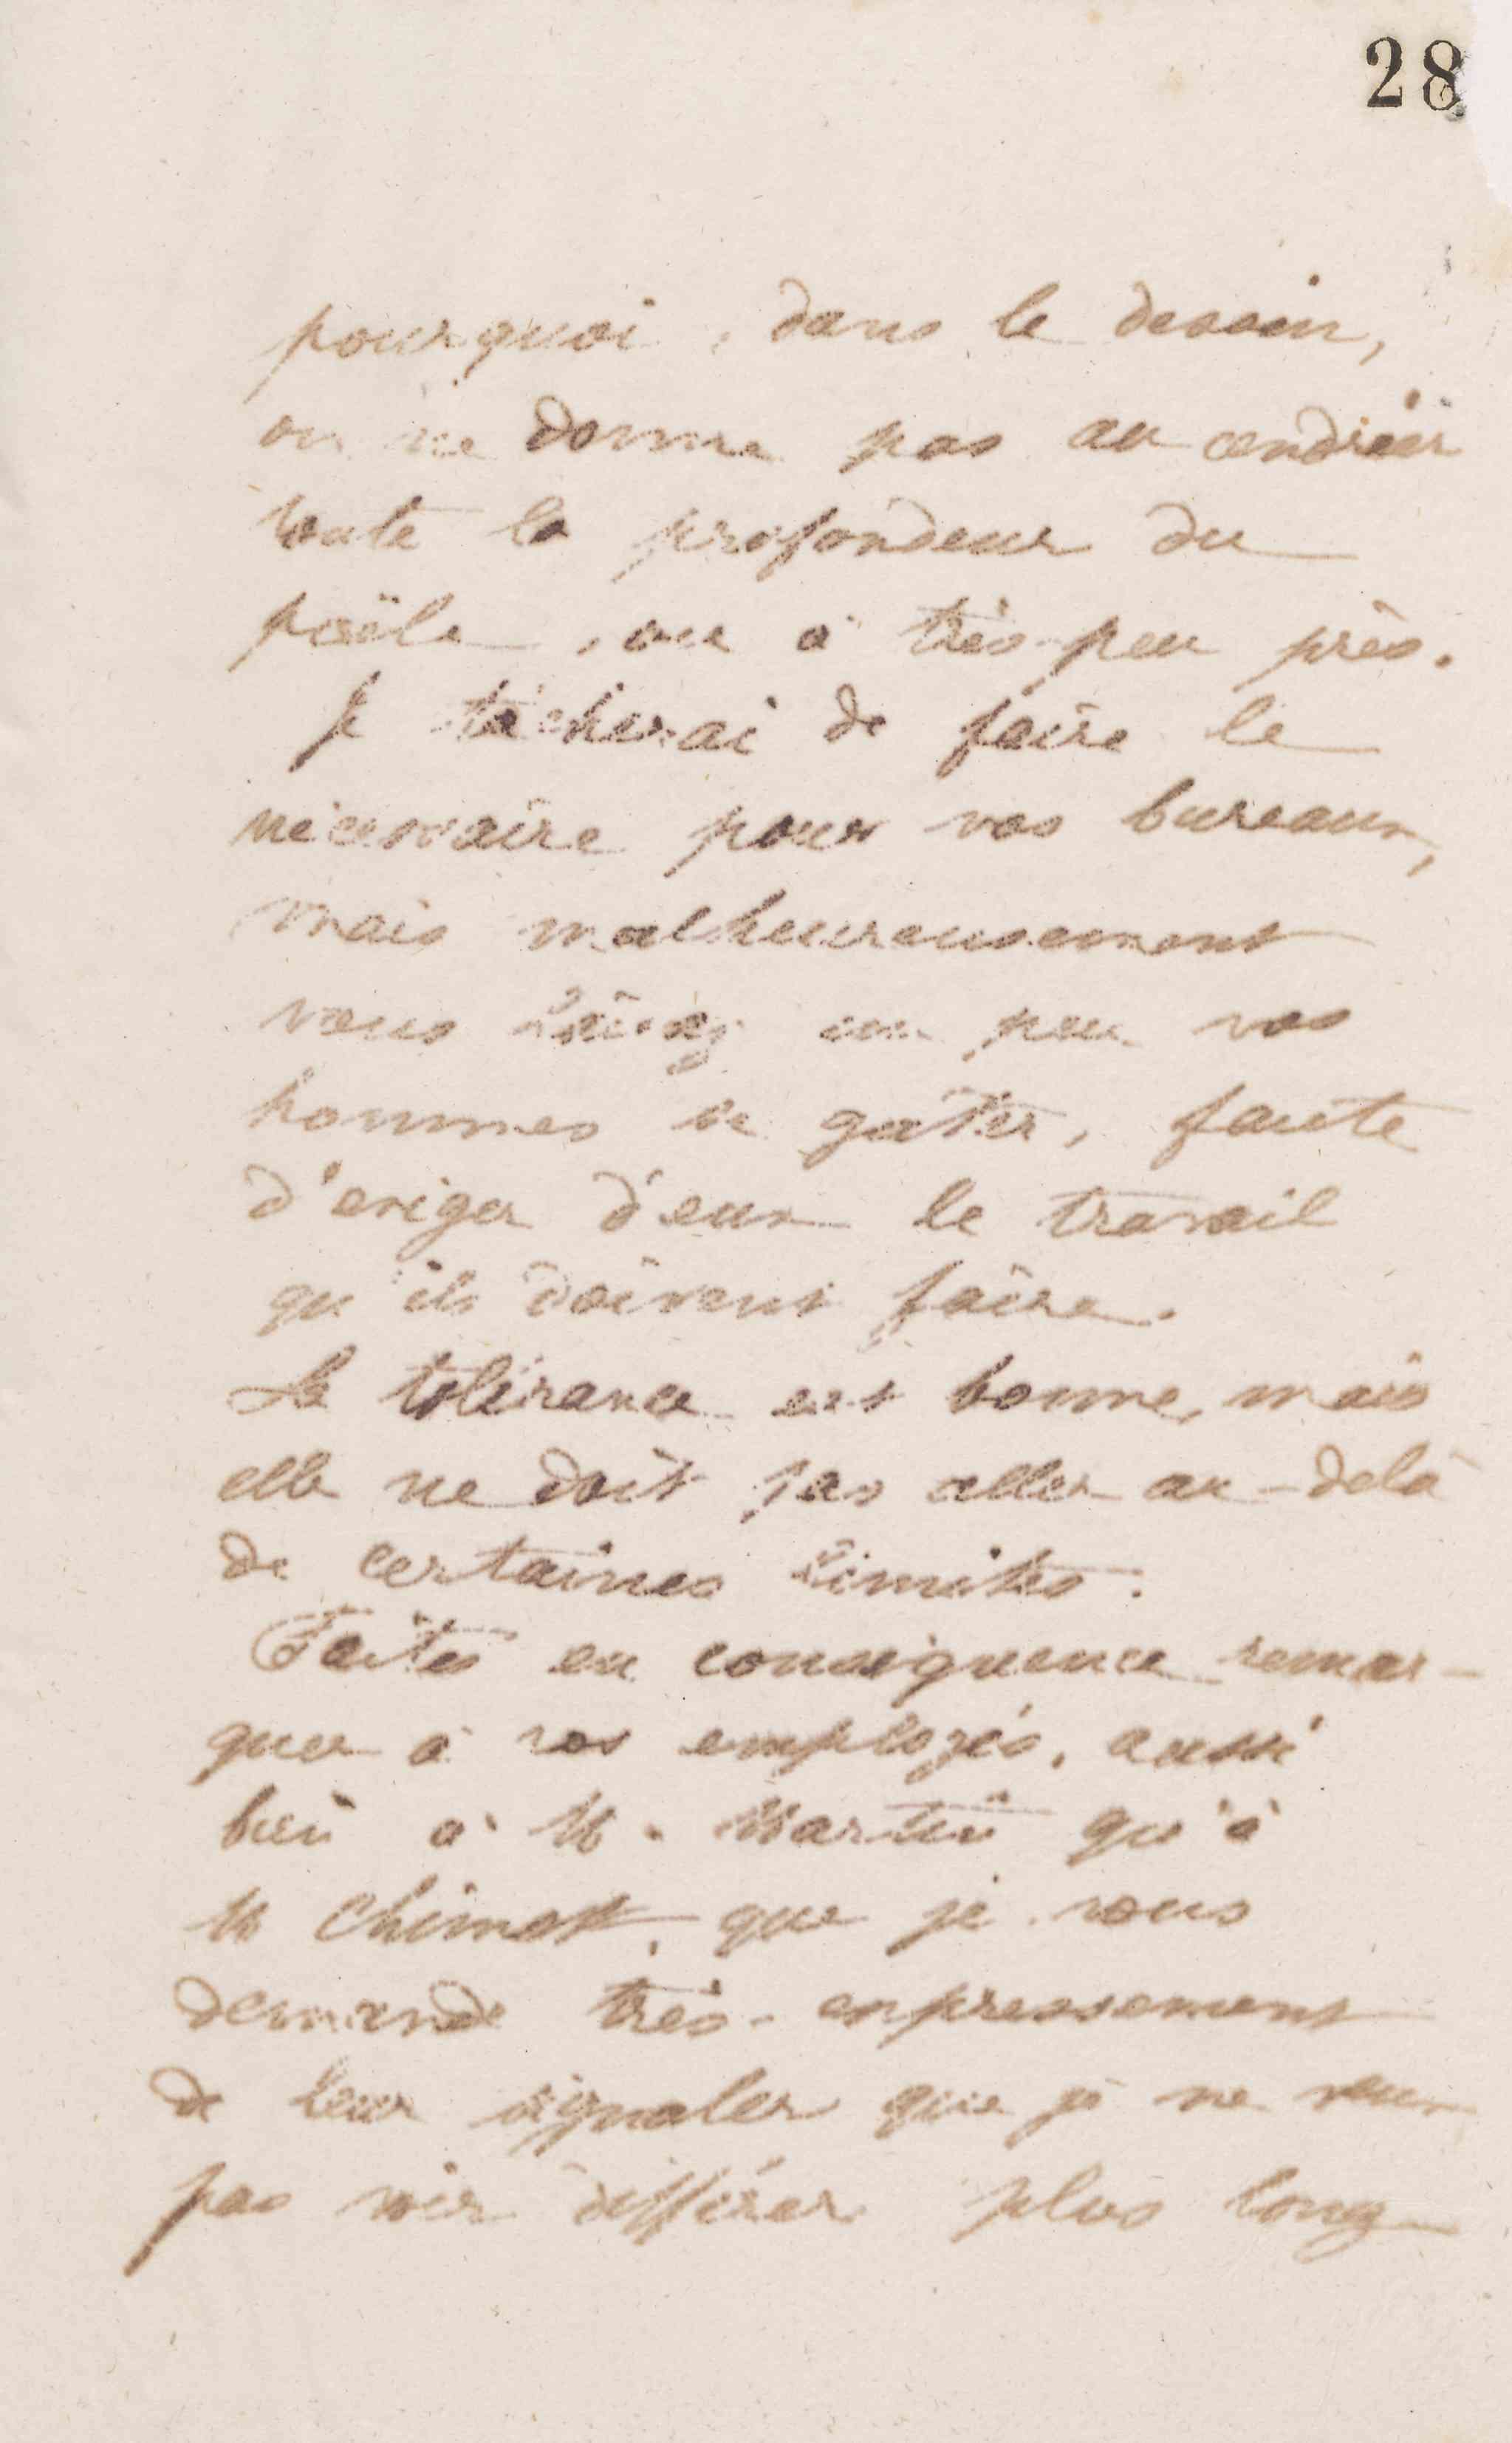 28
pourquoi, dans le dessin,
on ne donne pas au cendrier
toute la profondeur du
poële, ou à très-peu près.
Je tâcherai de faire le
nécessaire pour vos bureaux,
mais malheureusement
vous laissez un peu vos
hommes se gâter, faute
d'exiger d'eux le travail
qu'ils doivent faire.
La tolérance est bonne, mais
elle ne doit pas aller au-delà
de certaines limites.
Faites en conséquence remar-
quer à vos employés, aussi
bien à M. Martin qu'à
M Chimot, que je vous
demande très-expressement
de leur signaler que je ne veux
pas voir différer plus long